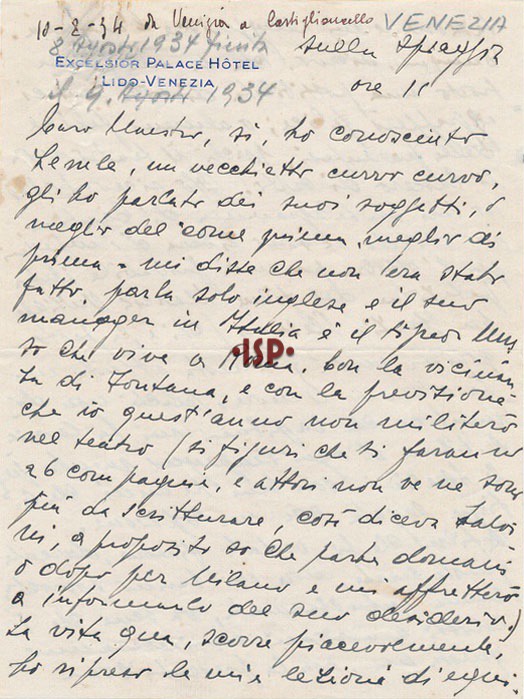 10-8-34 da Venezia a Castiglioncello VENEZIA
8 Agosto 1934 sulla spiaggia
EXCELSIOR PALACE HÔTEL
LIDO-VENEZIA
ore 15
il 9. Agosto 1934
Caro Maestro, sì, ho conosciuto
un vecchietto curvo curvo,
gli ho parlato dei suoi soggetti, o
meglio del "come prima, meglio di
prima - mi disse che non era stato
fatto, parla solo inglese e il suo
manager in Itallia è il signor Mus
so che vive a Roma. Con la vicinan
za di Fontana, e con la previsione
che io quest'anno non militerò
nel teatro (si figuri che si faranno
26 compagnie, e attori non ve ne sono
più da scritturare, così diceva Salvi
ni, a proposito so che parte domani
o dopo per Milano e mi affretterò
a informarlo del suo desiderio.)
La vita qua, scorre piacevolmente,
ho ripreso le mie lezioni di equi
•ISP•